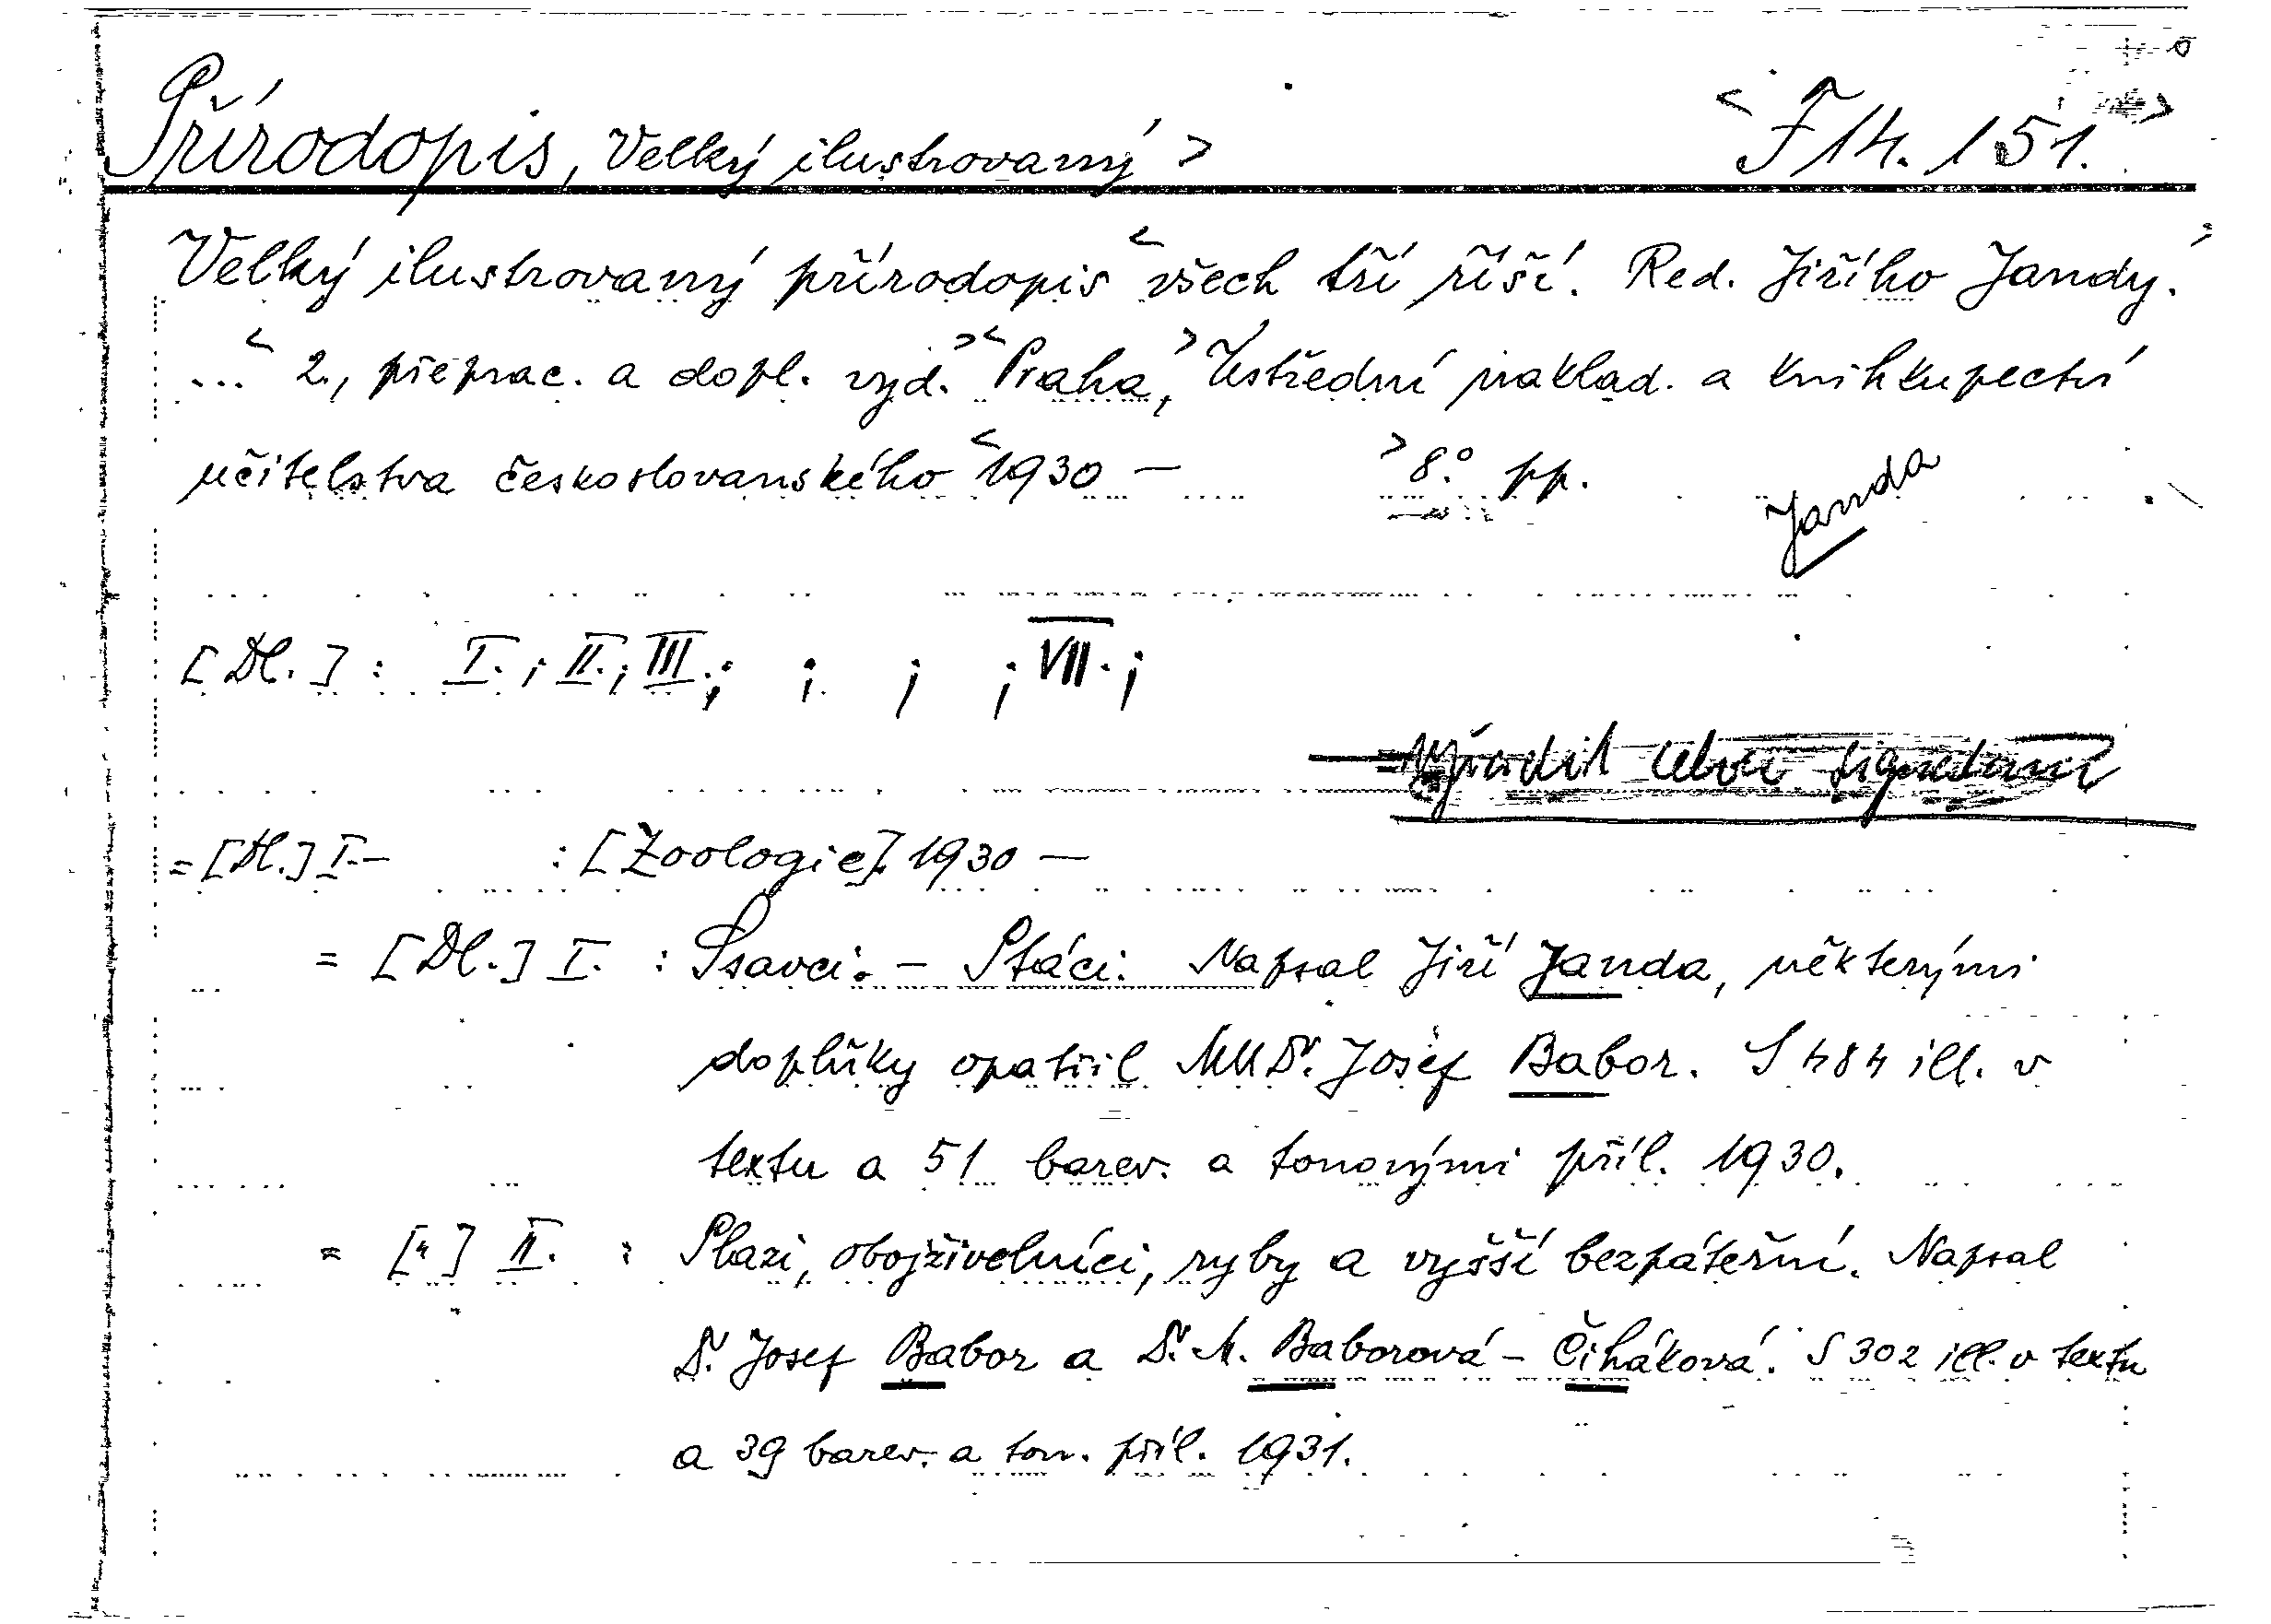 Přírodopis, Velký ilustrovaný > < F 14. 151. >
Velký ilustrovaný přírodopis < všech tří říší. Red. Jiřího Jandy.
... < 2., přeprac. a dopl. vyd. > < Praha, > Ústřední naklad. a knihkupectví
učitelstva českoslovanského < 1930 — > 8.° pp.
Janda
[Dl.] : I. ; II. ; III. ; ; ; ; VII. ;
= [Dl.] I.— : [Zoologie]. 1930 —
= [Dl.] I. : Ssavci. – Ptáci. Napsal Jiří Janda, některými
doplňky opatřil MUDr. Josef Babor. S 484 ill. v
textu a 51 barev. a tonovými příl. 1930.
= [„] II. : Plazi, obojživelníci, ryby a vyšší bezpáteřní. Napsal
Dr. Josef Babor a Dr. M. Baborová-Čiháková. S 302 ill. v textu
a 39 barev. a ton. příl. 1931.